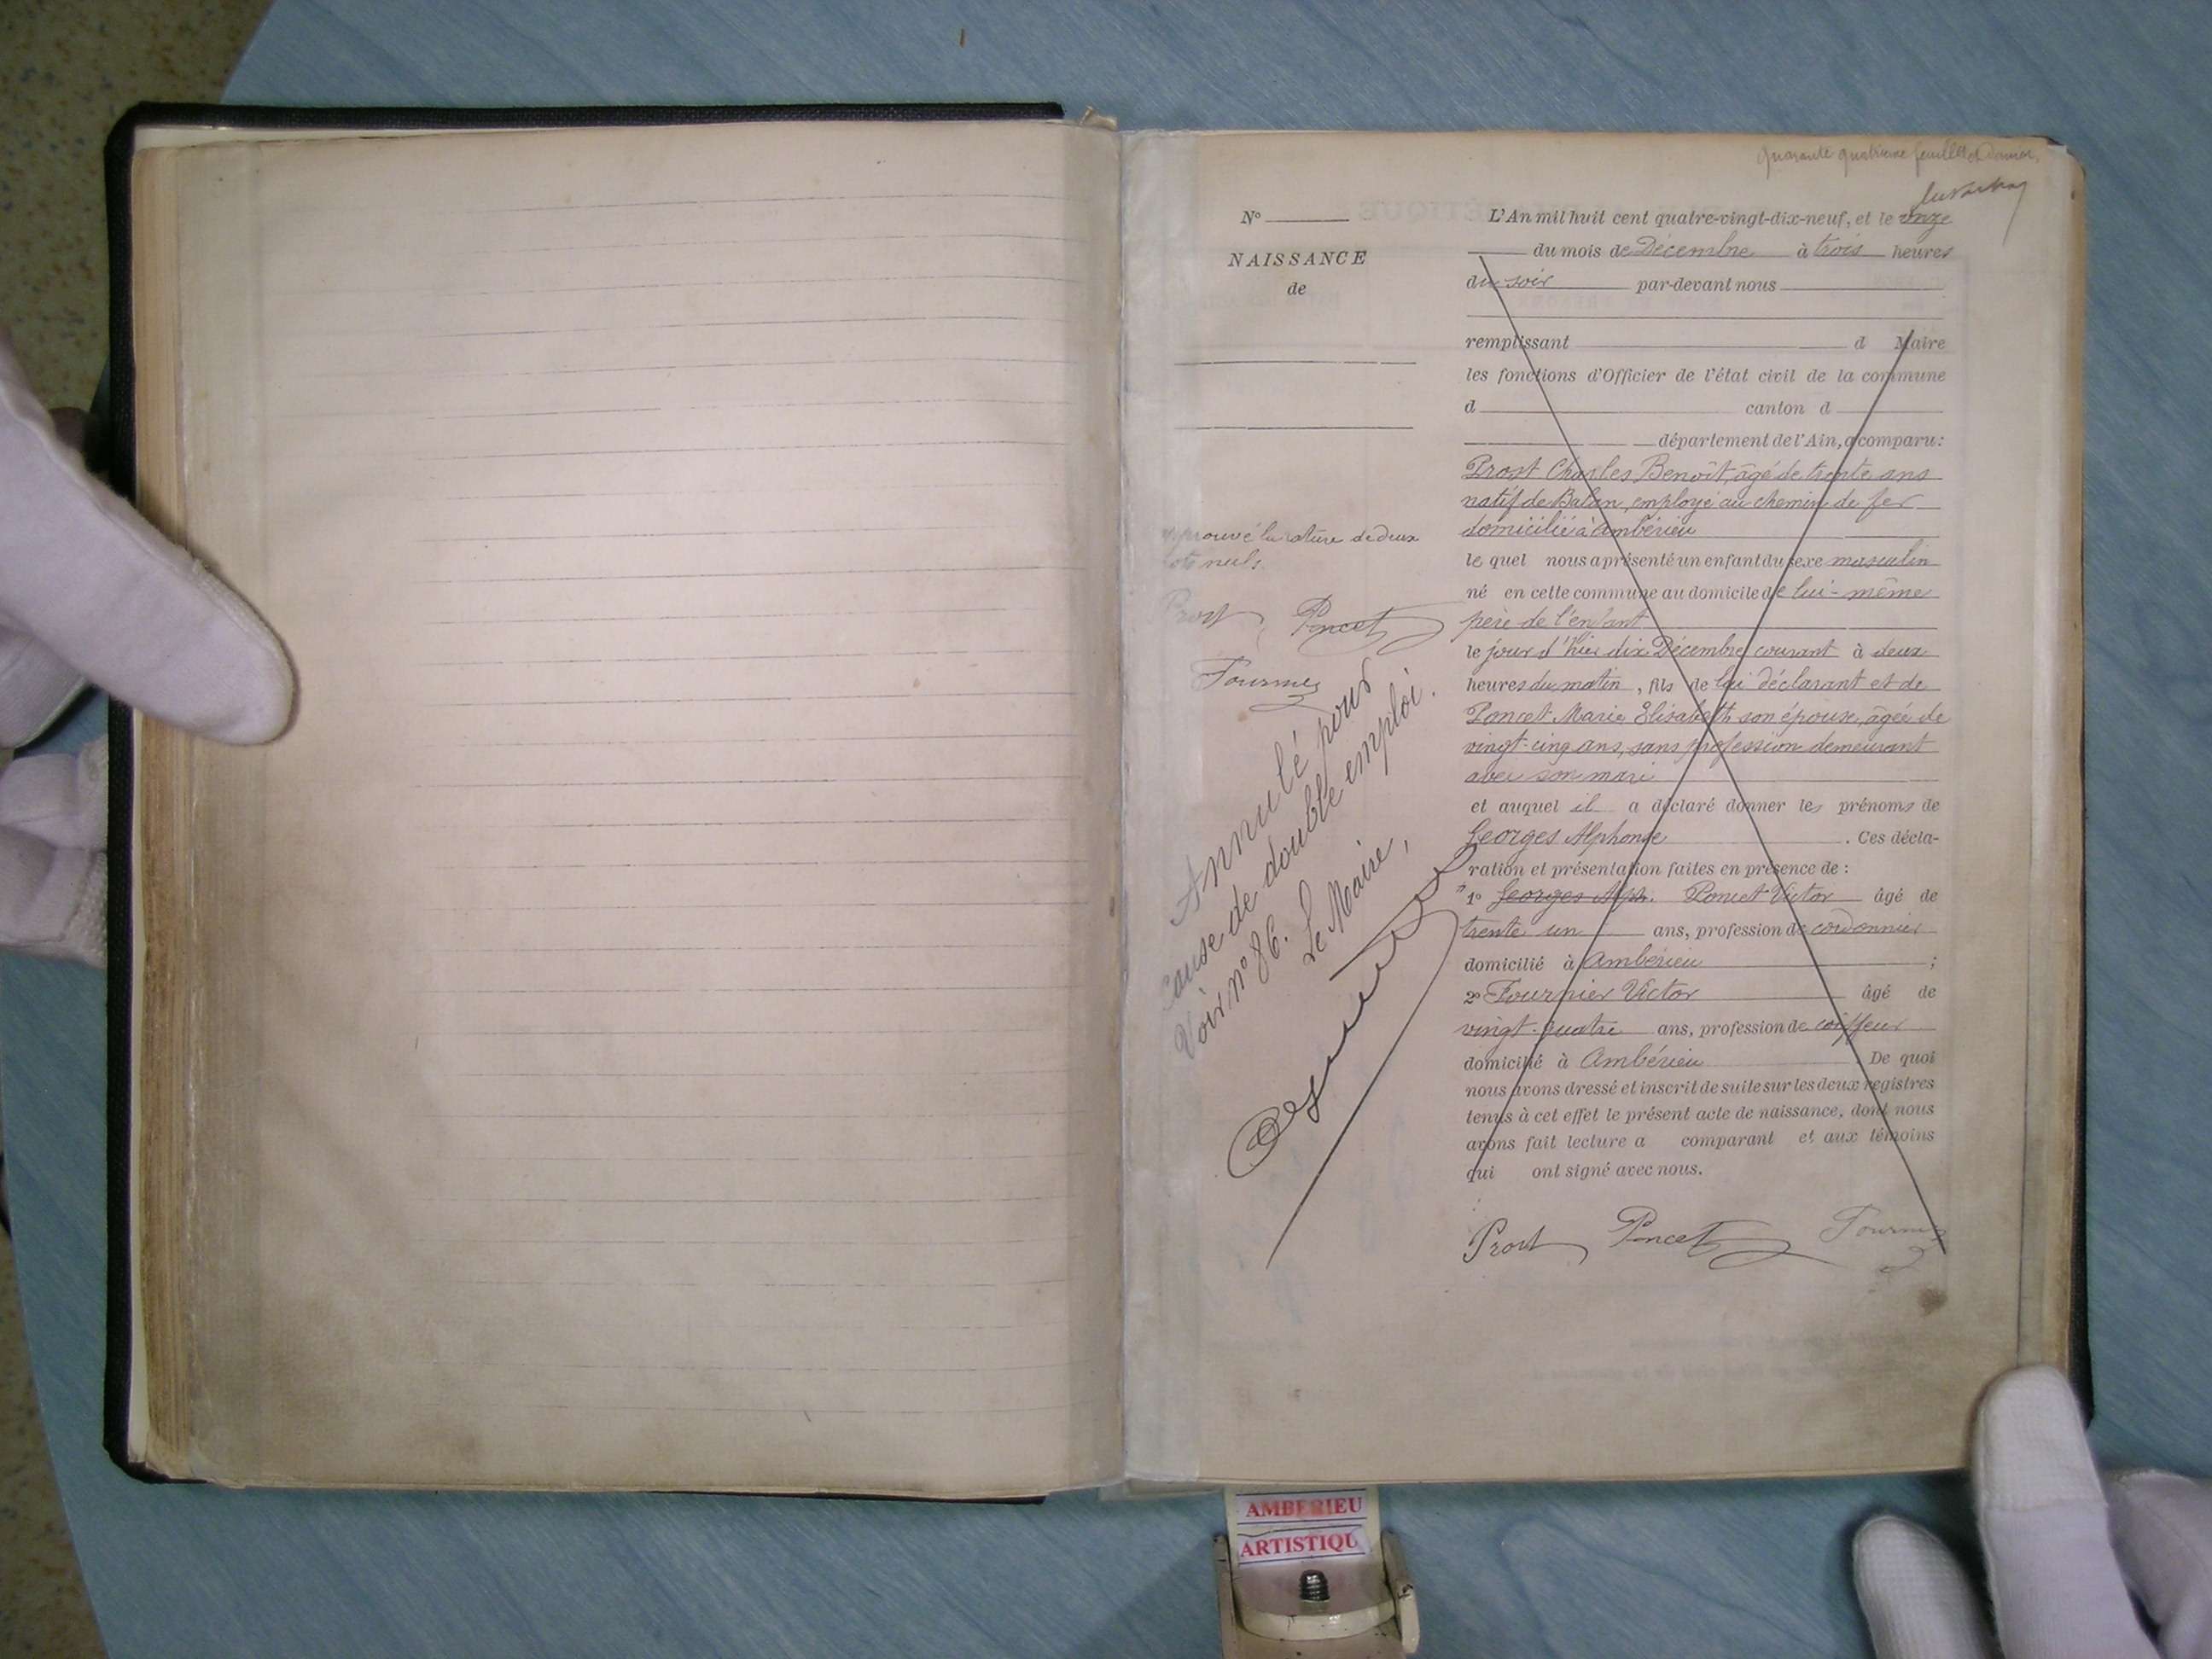 quarante quatrième feuillet et dernier,
N°
NAISSANCE
de
L'An mil huit cent quatre-vingt-dix-neuf, et le onze
du mois de Décembre à trois heures
du soir par-devant nous
remplissant d Maire
les fonctions d'Officier de l'état civil de la commune
d canton d
département de l'Ain, a comparu:
Prost Charles Benoît, âgé de trente ans
natif de Balan, employé au chemin de fer
domicilié à Ambérieu
le quel nous a présenté un enfant du sexe masculin
né en cette commune au domicile de lui-même
père de l'enfant
le jour d'hier dix Décembre courant à deux
heures du matin, fils de lui déclarant et de
Poncet Marie Elisabeth son épouse, âgée de
vingt-cinq ans, sans profession demeurant
avec son mari
et auquel il a déclaré donner les prénoms de
Georges Alphonse. Ces décla-
ration et présentation faites en présence de :
1° Georges Alph. Poncet Victor âgé de
trente un ans, profession de cordonnier
domicilié à Ambérieu ;
2° Fournier Victor âgé de
vingt-quatre ans, profession de coiffeur
domicilié à Ambérieu. De quoi
nous avons dressé et inscrit de suite sur les deux registres
tenus à cet effet le présent acte de naissance, dont nous
avons fait lecture a comparant et aux témoins
qui ont signé avec nous.
Prost Poncet Fournier
approuvé la rature de deux
mots nuls.
Prost Poncet
Fournier
Annulé pour
cause de double emploi.
Voir n° 86.
Le Maire,
AMBERIEU
ARTISTIQU